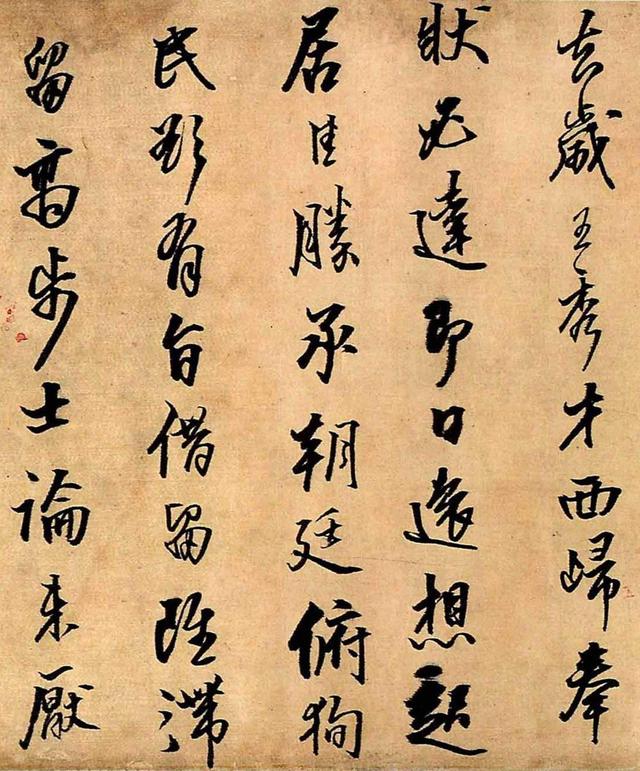 去歲王秀才西歸奉
狀必達即日遠想起
居佳勝承朝廷俯狥
民欲有旨借留雖滯
留高步士論未厭